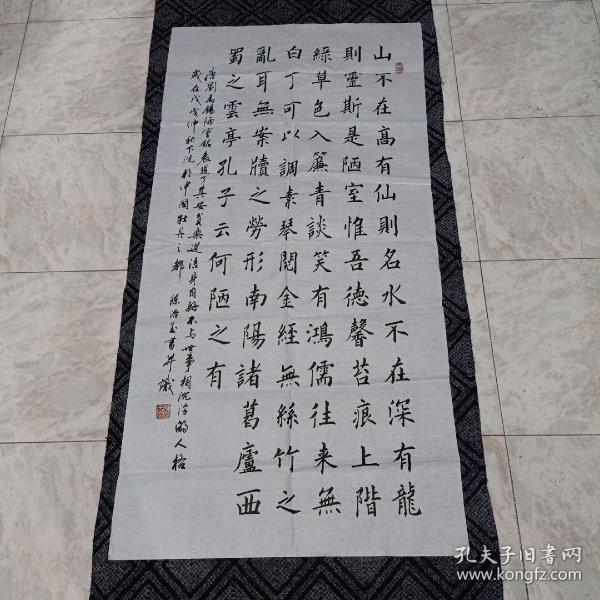 山不在高有仙則名水不在深有龍
則靈斯是陋室惟吾德馨苔痕上階
綠草色入簾青談笑有鴻儒往来無
白丁可以調素琴閱金經無絲竹之
亂耳無案牘之勞形南陽諸葛廬西
蜀之雲亭孔子云何陋之有
唐劉禹錫陋室銘表達了其安貧樂道潔身自好不与世事相沉浮的人格
歲在戊戌仲秋下浣於中國牡丹之都 陈治玉書并識
孔夫子旧书网
www.kongfz.com